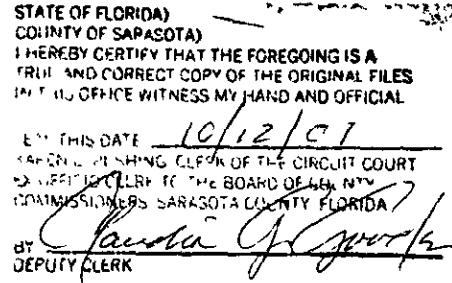 STATE OF FLORIDA)
COUNTY OF SARASOTA)
I HEREBY CERTIFY THAT THE FOREGOING IS A
TRUE AND CORRECT COPY OF THE ORIGINAL FILES
IN THIS OFFICE WITNESS MY HAND AND OFFICIAL
THIS DATE 10/12/07
KAREN E. RUSHING CLERK OF THE CIRCUIT COURT
EX OFFICIO CLERK TO THE BOARD OF COUNTY
COMMISSIONERS SARASOTA COUNTY FLORIDA
BY
DEPUTY CLERK